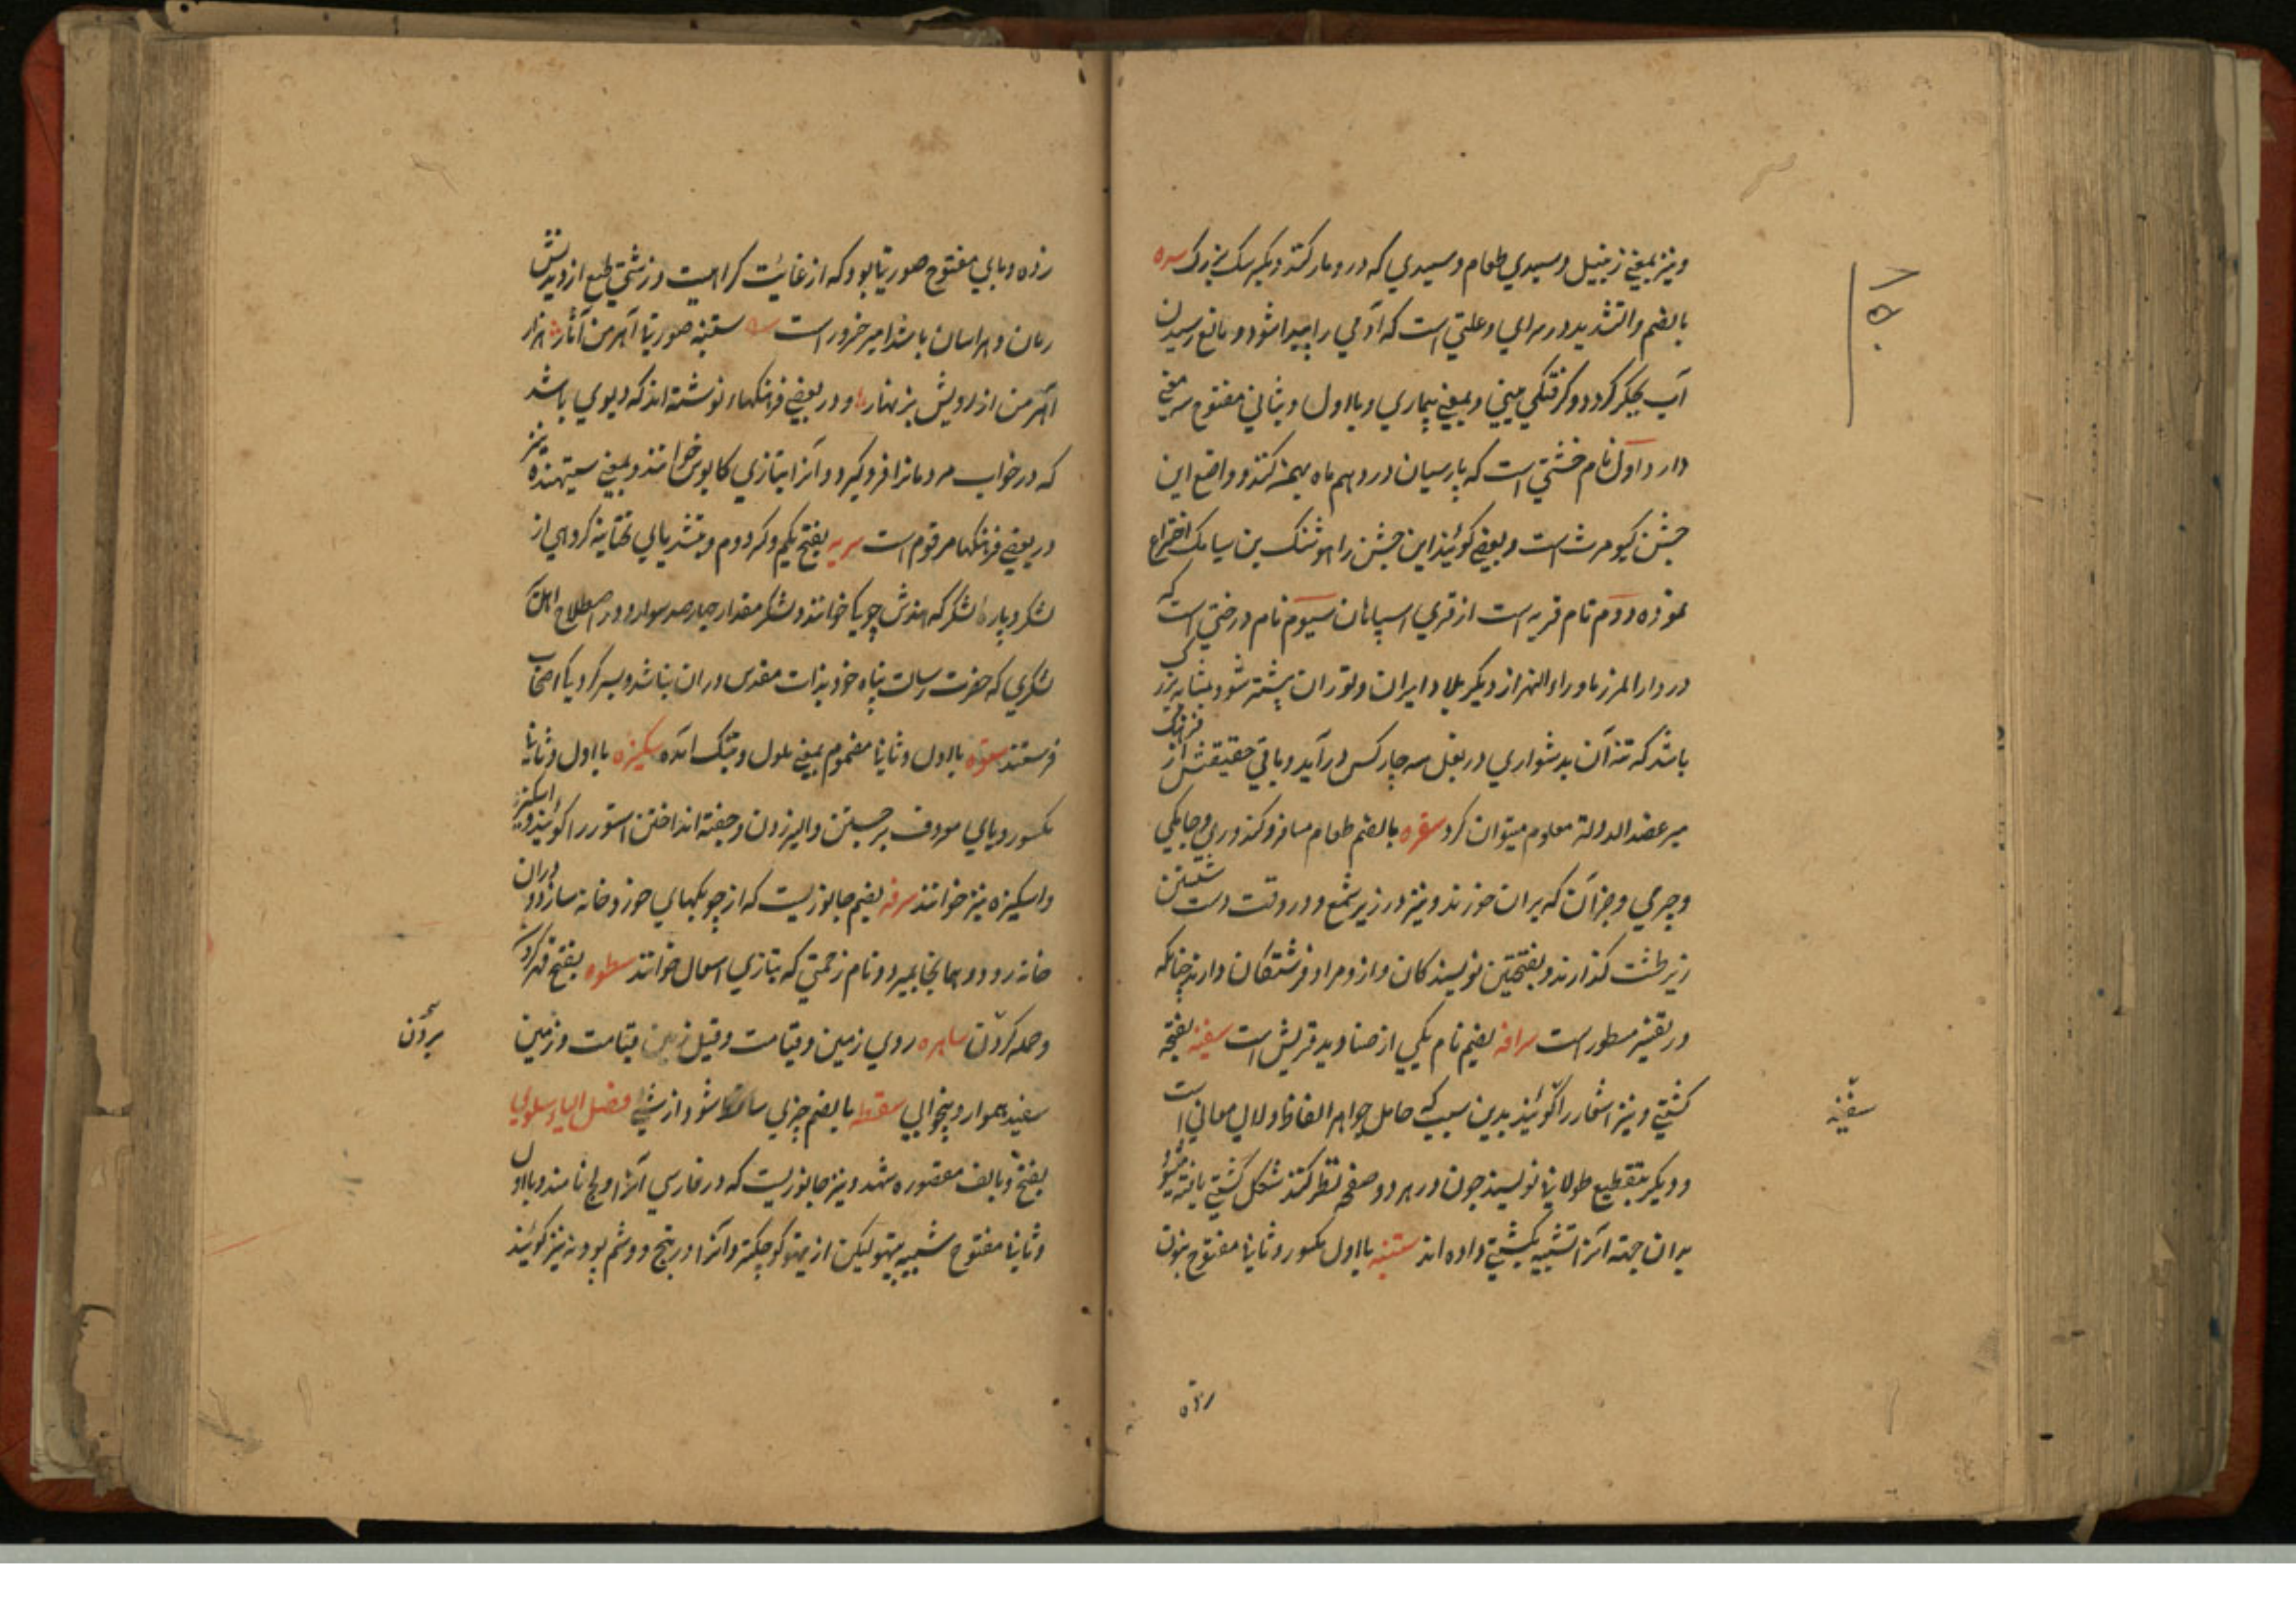 ۱۵۰
و نیز بمعنی زنبیل و سبدی طعام و سبدی که درو مار کنند و دیگر سنک بزرک سده
بالضم والتشدید در سرای و علتی است که آدمی را پیدا شود و مانع رسیدن
آب بجگر گردد و گرفتگی بینی و بمعنی بیماری و با اول و ثانی مفتوح سه معنی
دارد اول نام جشنی است که پارسیان در دهم ماه بهمن کنند و واضع این
جشن کیومرث است و بعضی گویند این جشن را هوشنک بن سیامک اختراع
نموده دوم نام قریه است از قری اسپاهان سیوم نام درختی است که
در دارالمرز ماوراءالنهر از دیکر بلاد ایران و توران بیشتر شود بمثابه بزرک
باشد که تنه آن بدشواری در بغل سه چار کس درآید و باقی حقیقتش از فرهنک
میر عضدالدولة معلوم میتوان کرد سفره بالضم طعام مسافر و کندوری و جایکی
و چرمی و جز آن که بران خورند و نیز در زیر شمع و در وقت دست شستن
زیر طشت گذارند و بفتحتین نویسندکان و ازو مراد فرشتکان دارند چنانکه
در تفسیر مسطور است سراقه بضم نام یکی از صنادید قریش است سفینه بفتحه
کشتی و نیز اشعار را گویند بدین سبب که حامل جواهر الفاظ و لالی معانی است
و دیگر بتقطیع طولانی نویسند چون در هر دو صفحه نظر کنند شکل کشتی یافته میشود
بران جهته آنرا تشبیه بکشتی داده اند ستنبه با اول مکسور و ثانیا مفتوح بنون
سفینه
زده و بای مفتوح صورتیا بود که از غایت کراهیت و زشتی طبع از دیدنش
رمان و هراسان باشد امیر خسرو راست ستنبه صورتیا آهرمن آثار هزار
آهرمن از رویش بزنهار و در بعضی فرهنکها نوشته اند که دیوی باشد
که در خواب مردمانرا فرو گیرد و آنرا بتازی کابوس خوانند و بمعنی ستیهنده نیز
در بعضی فرهنکها مرقوم است سریه بفتح یکم و کسر دوم و بتشدید یای تحتانیه گروهی از
لشکر و پاره لشکر که هندش چویکا خوانند و لشکر مقدار چهارصد سوار و در اصطلاح اهل
لشکری که حضرت رسالت پناه خود بذات مقدس دران نباشد و بسر کرد یکی اصحاب
فرستند ستوه با اول و ثانیا مضموم بمعنی ملول و بتنک آمده سکیزه با اول و ثانیا
مکسور و یای معروف برجستن و الیز زدن و جفته انداختن استور را گویند و اسکیز
و اسکیزه نیز خوانند سرفه بضم جانوریست که از چوبکهای خورد خانه سازد و دران
خانه رود و همانجا بمیرد و نام زحمتی که بتازی سعال خوانند سطوه بفتح قهر کردن
و حمله کردن ساهره روی زمین و قیامت و قیل زمین قیامت و زمین
سفید هموار و بیخوابی سقطه بالضم چیزی ساقط شود از شی فصل الیاء سلوی
بفتح و بالف مقصوره شهد و نیز جانوریست که در فارسی آنرا ولج نامند و با اول
و ثانیا مفتوح شبیه بتیهو لیکن از تیهو کوچکتر و آنرا ورتج و وشم و بودنه نیز گویند
بردن